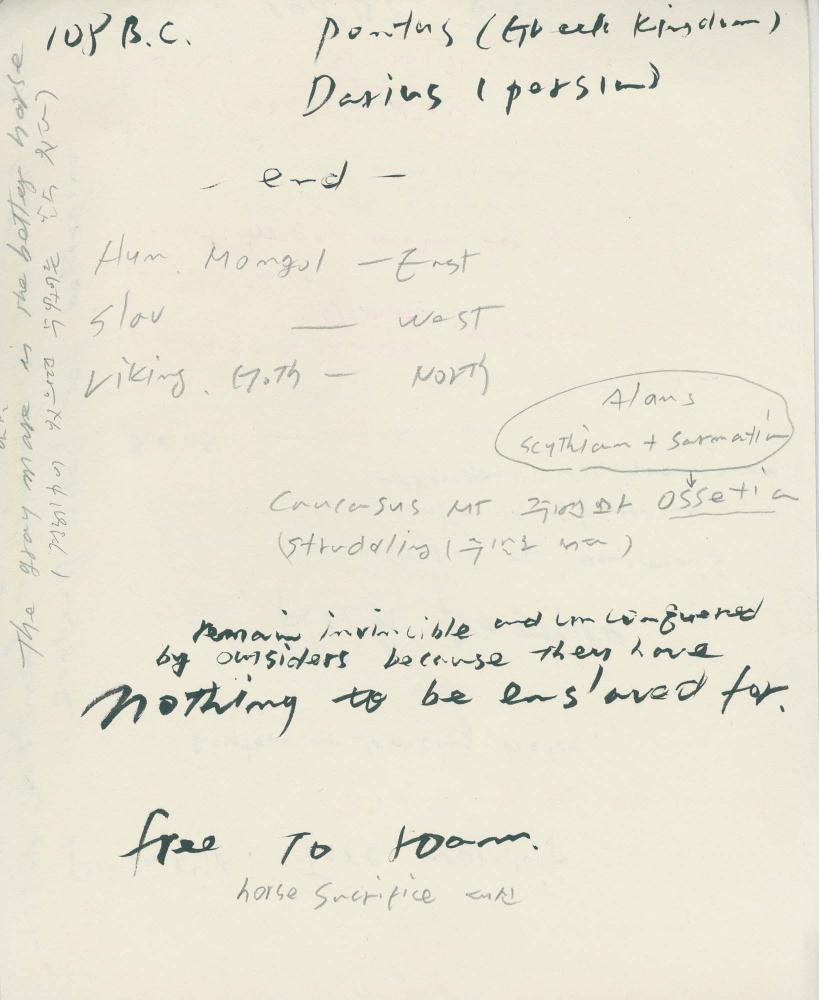 108 B.C.
Pontus (Greek Kingdom)
Darius (persian)
- end -
Hun. Mongol - East
Slav — west
Viking. Goth - North
Alans
Scythian + Sarmatian
Caucasus MT 주변 Ossetia
(Struddling (
remain invincible and unconquered
by outsiders because they have
Nothing to be enslaved for.
free To roam.
horse Sacrifice 대신
The gray mare is the better horse